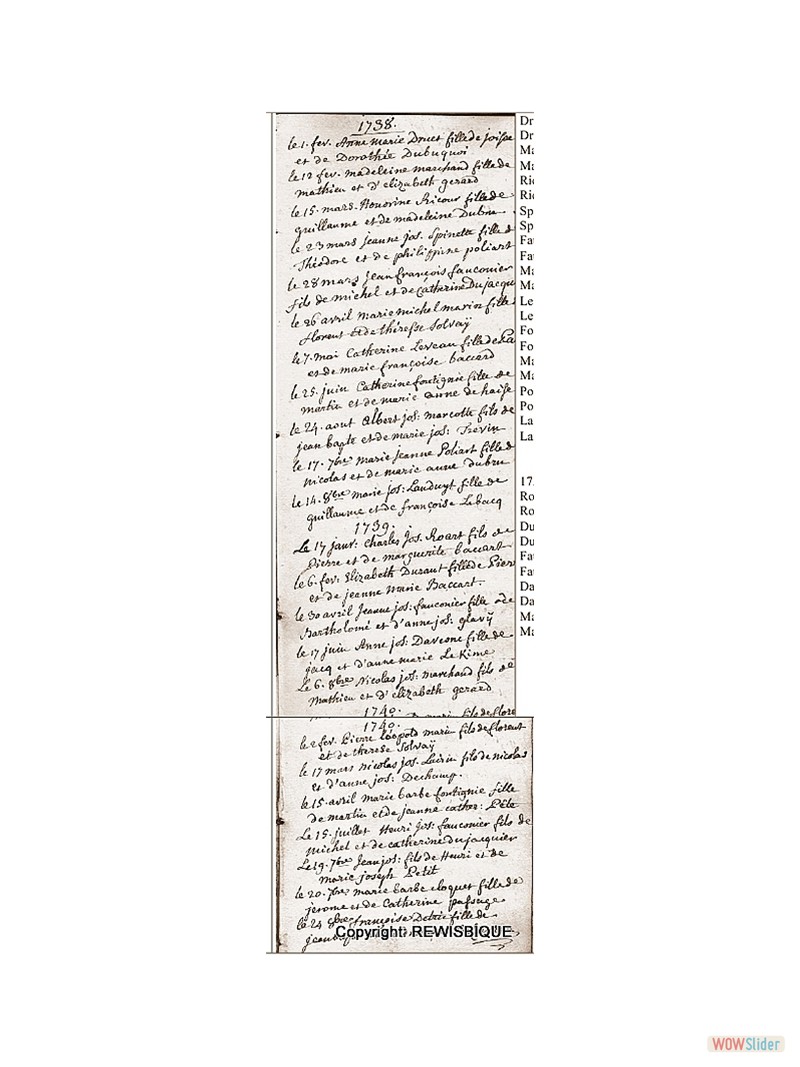 1738.
le 1. fev. Anne marie Druet fille de
et de Dorothée Dubuquoi
le 12 fev. madeleine marchand fille de
mathieu et d'elizabeth gerard
le 15. mars. Honorine Ricour fille de
guillaume et de madeleine Dubru
le 23 mars jeanne jos. Spinette fille d
Théodore et de philippine poliart
le 28 mars jean françois fauconier
fils de michel et de Catherine Dujacqu
le 26 avril marie michel marin fille
florent et de thérèse Solvaÿ
le 7. mai Catherine Leveau fille de
et de marie françoise baccard
le 25. juin Catherine fontignie fille de
martin et de marie anne de haise
le 24. aout Albert jos: marcotte fils de
jean bapte et de marie jos: Trevin
le 17. 7bre marie jeanne Poliart fille d
nicolas et de marie anne dubru
le 14. 8bre marie jos: Landuyt fille de
guillaume et de françoise Lebacq
1739.
Le 17 janv: Charles Jos. Roart fils de
Pierre et de marguerite baccart
le 6. fev: Elizabeth Duraut fille de Pierr
et de jeanne Marie Baccart.
le 30 avril Jeanne jos: fauconier fille de
Bartholomé et d'anne jos: glavÿ
le 17 juin Anne jos: Davoine fille de
jacq et d'anne marie Le Kime
Le 6. 8bre Nicolas jos: marchand fils de
Mathieu et d'elizabeth gerard
1740.
1740.
le 2 fev. Pierre léopold marin fils de florent
et de therese Solvaÿ
le 17 mars nicolas jos. Luirin fils de nicolas
et d'anne jos: Dechamp.
le 15. avril marie barbe fontignie fille
de martin et de jeanne cather: Pête
Le 15. juillet Henri Jos: fauconier fils de
michel et de catherine dujacquier
Le 19. 7bre Jean jos: fils de Henri et de
marie joseph Petit
le 20. 7bre marie barbe cloquet fille de
jerome et de Catherine passage
le 24 françoise Detrie fille de
jean
Copyright: REWISBIQUE
Dr
Dr
Ma
Ma
Ric
Ric
Sp
Sp
Fau
Fau
Ma
Ma
Le
Le
Fo
Fo
Ma
Ma
Po
Po
La
La
17
Ro
Ro
Du
Du
Fau
Fau
Da
Da
Ma
Ma
WOWSlider